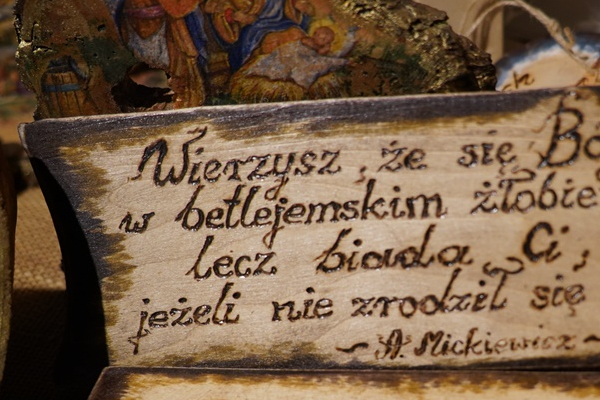 Wierzysz, że się Bó
w betlejemskim żłobie
lecz biada Ci,
jeżeli nie zrodził się
~ A. Mickiewicz ~